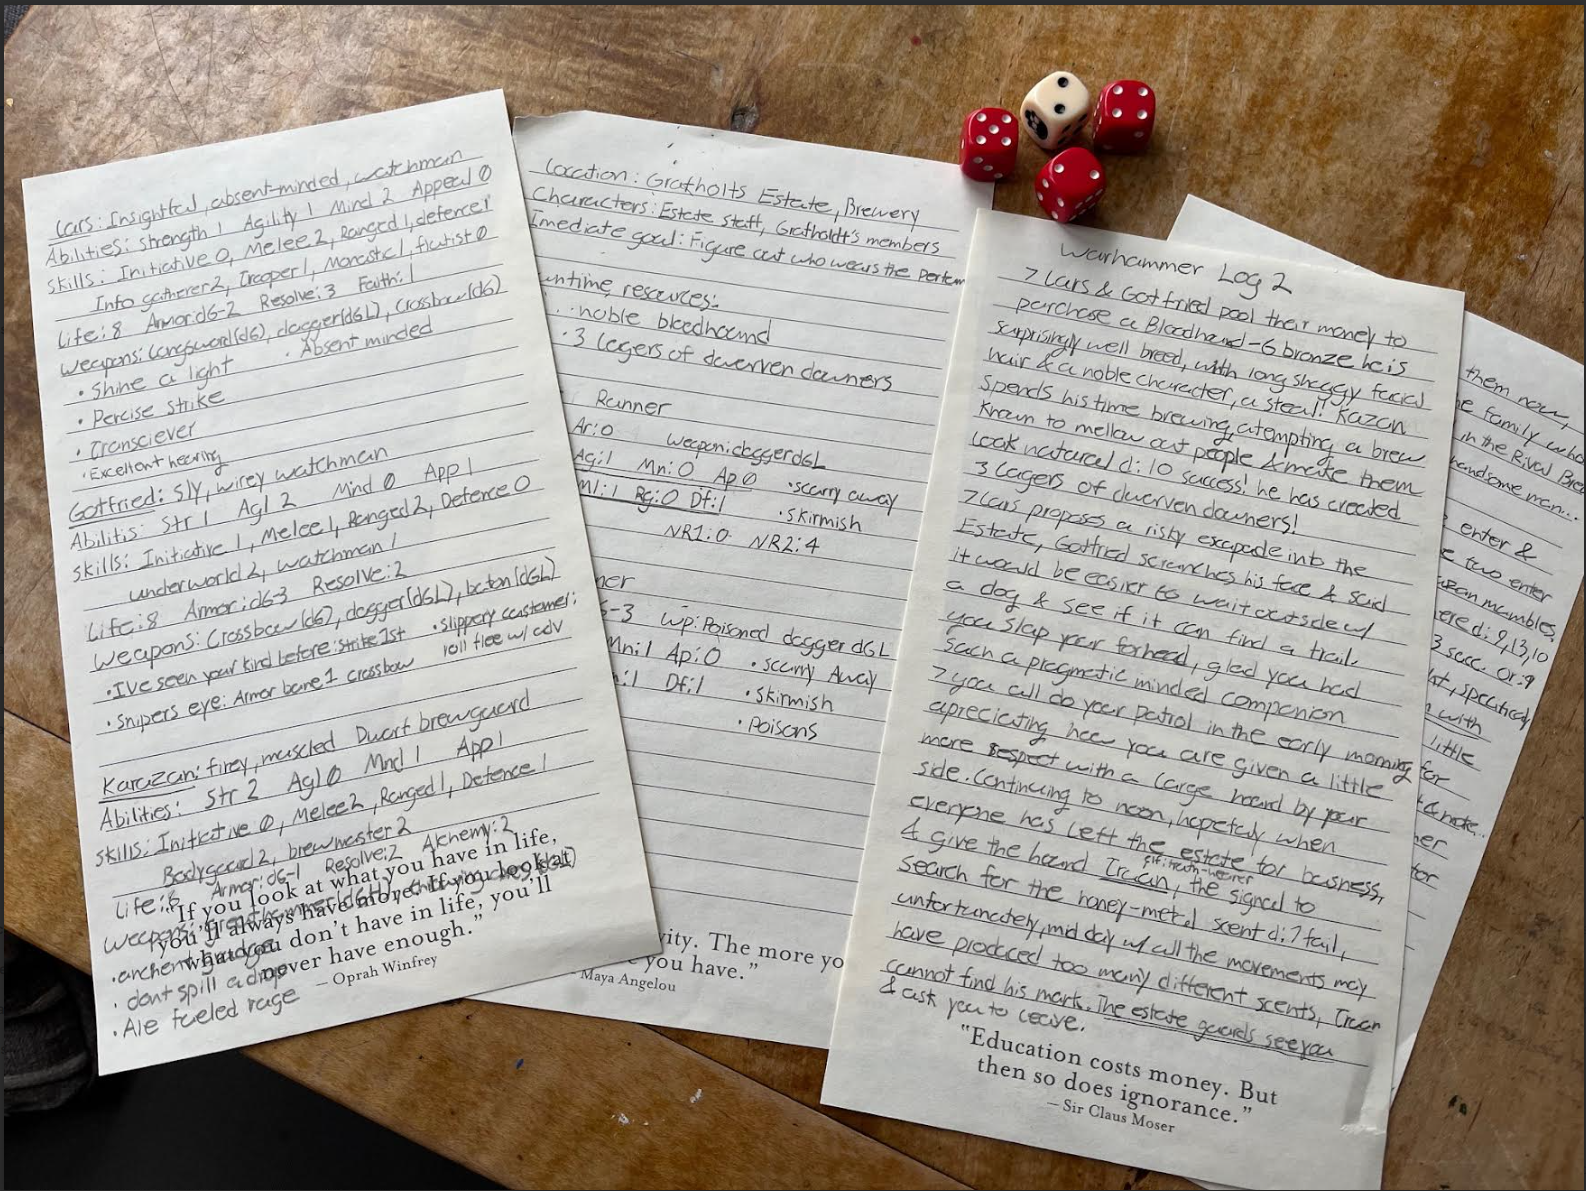 Lars: Insightful, absent-minded, watchman
Abilities: strength 1 Agility 1 Mind 2 Appeal 0
Skills: Initiative 0, Melee 2, Ranged 1, defence 1
Info gatherer 2, Trooper 1, Monastic 1, flautist 0
Life: 8 Armor: d6-2 Resolve: 3 Faith: 1
Weapons: Longsword (d6), dagger (d6L), Crossbow (d6)
• Shine a light • Absent minded
• Percise strike
• Transciever
• Excellent hearing
Gotfried: Sly, wirey watchman
Abilitis: Str 1 Agl 2 Mind 0 App 1
Skills: Initiative 1, Melee 1, Ranged 2, Defence 0
underworld 2, watchman 1
Life: 8 Armor: d6-3 Resolve: 2
Weapons: Crossbow (d6), dagger (d6L), baton (d6L)
• I've seen your kind before: strike 1st • slippery customer:
roll flee w/ adv
• Snipers eye: Armor bane 1 crossbow
Karazan: firey, muscled Dwarf brewguard
Abilities: Str 2 Agl 0 Mnd 1 App 1
Skills: Initiative 0, Melee 2, Ranged 1, Defence 1
Bodyguard 2, brewmaster 2 Alchemy: 2
Life: 8 Armor: d6-1 Resolve: 2
weapons:
• anchem grudge
• dont spill a drop
• Ale fueled rage
"If you look at what you have in life,
you'll always have more. If you look at
what you don't have in life, you'll
never have enough."
– Oprah Winfrey
Location: Grafholts Estate, Brewery
Characters: Estate staff, Grafholdt's members
Imediate goal: Figure out who wears the
untime resources:
• noble bloodhound
• 3 Lagers of dwerven downers
Runner
Ar: 0 weapon: dagger d6L
Ag: 1 Mn: 0 Ap 0 • scurry away
Ml: 1 Rg: 0 Df: 1 • skirmish
NR1: 0 NR2: 4
ner
-3 Wp: Poisoned dagger d6L
Mn: 1 Ap: 0 • scurry Away
: 1 Df: 1 • Skirmish
• Poisons
ity. The more yo
you have."
Maya Angelou
Warhammer Log 2
> Lars & Gotfried pool their money to
purchase a Bloodhand - 6 bronze he is
surprisingly well breed, with long shaggy facial
hair & a noble character, a steal! Kazan
spends his time brewing, atempting a brew
known to mellow out people & make them
look natural d: 10 success! he has created
3 Lagers of dwerven downers!
> Lars proposes a risky escapade into the
Estate, Gotfried scrunches his face & said
it would be easier to wait outside w/
a dog & see if it can find a trail.
you slap your forhead, glad you had
such a pragmatic minded companion
> you all do your patrol in the early morning
apreciating how you are given a little
more respect with a large hound by your
side. Continuing to noon, hopefuly when
everyone has left the estate for business,
& give the hound Truan, the signal to
search for the honey-metal scent d: 7 fail,
unfortunately, mid day w/ all the movements may
have produced too many different scents, Truan
cannot find his mark. The estate guards see you
& ask you to leave.
"Education costs money. But
then so does ignorance."
– Sir Claus Moser
them now,
e family who
in the Rival Bre
handsome man...
enter &
e two enter
membles.
ered: 9, 13, 10
3 succ. or: 9
ht, specificaly
with
little
for
& note..
her
for